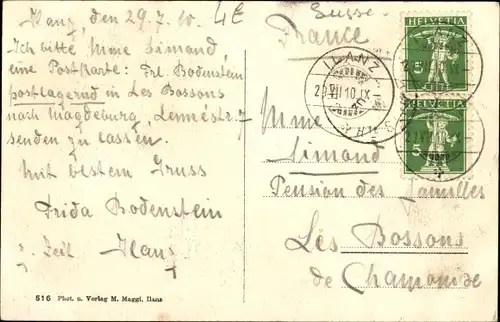 Ilanz, den 29.7.10.
4E
Ich bitte Mme Simand
eine Postkarte: Frl. Bodenstein
postlagernd in Les Bossons
nach Magdeburg, Lennéstr. 7
senden zu lassen.
Mit bestem Gruss
Frida Bodenstein
z. Zeit Ilanz
516 Phot. u. Verlag M. Maggi, Ilanz
Suisse
France
HELVETIA
5
HELVETIA
5
ILANZ
29.VII.10.IX
Mme
Simand
Pension des Familles
Les Bossons
de Chamonix